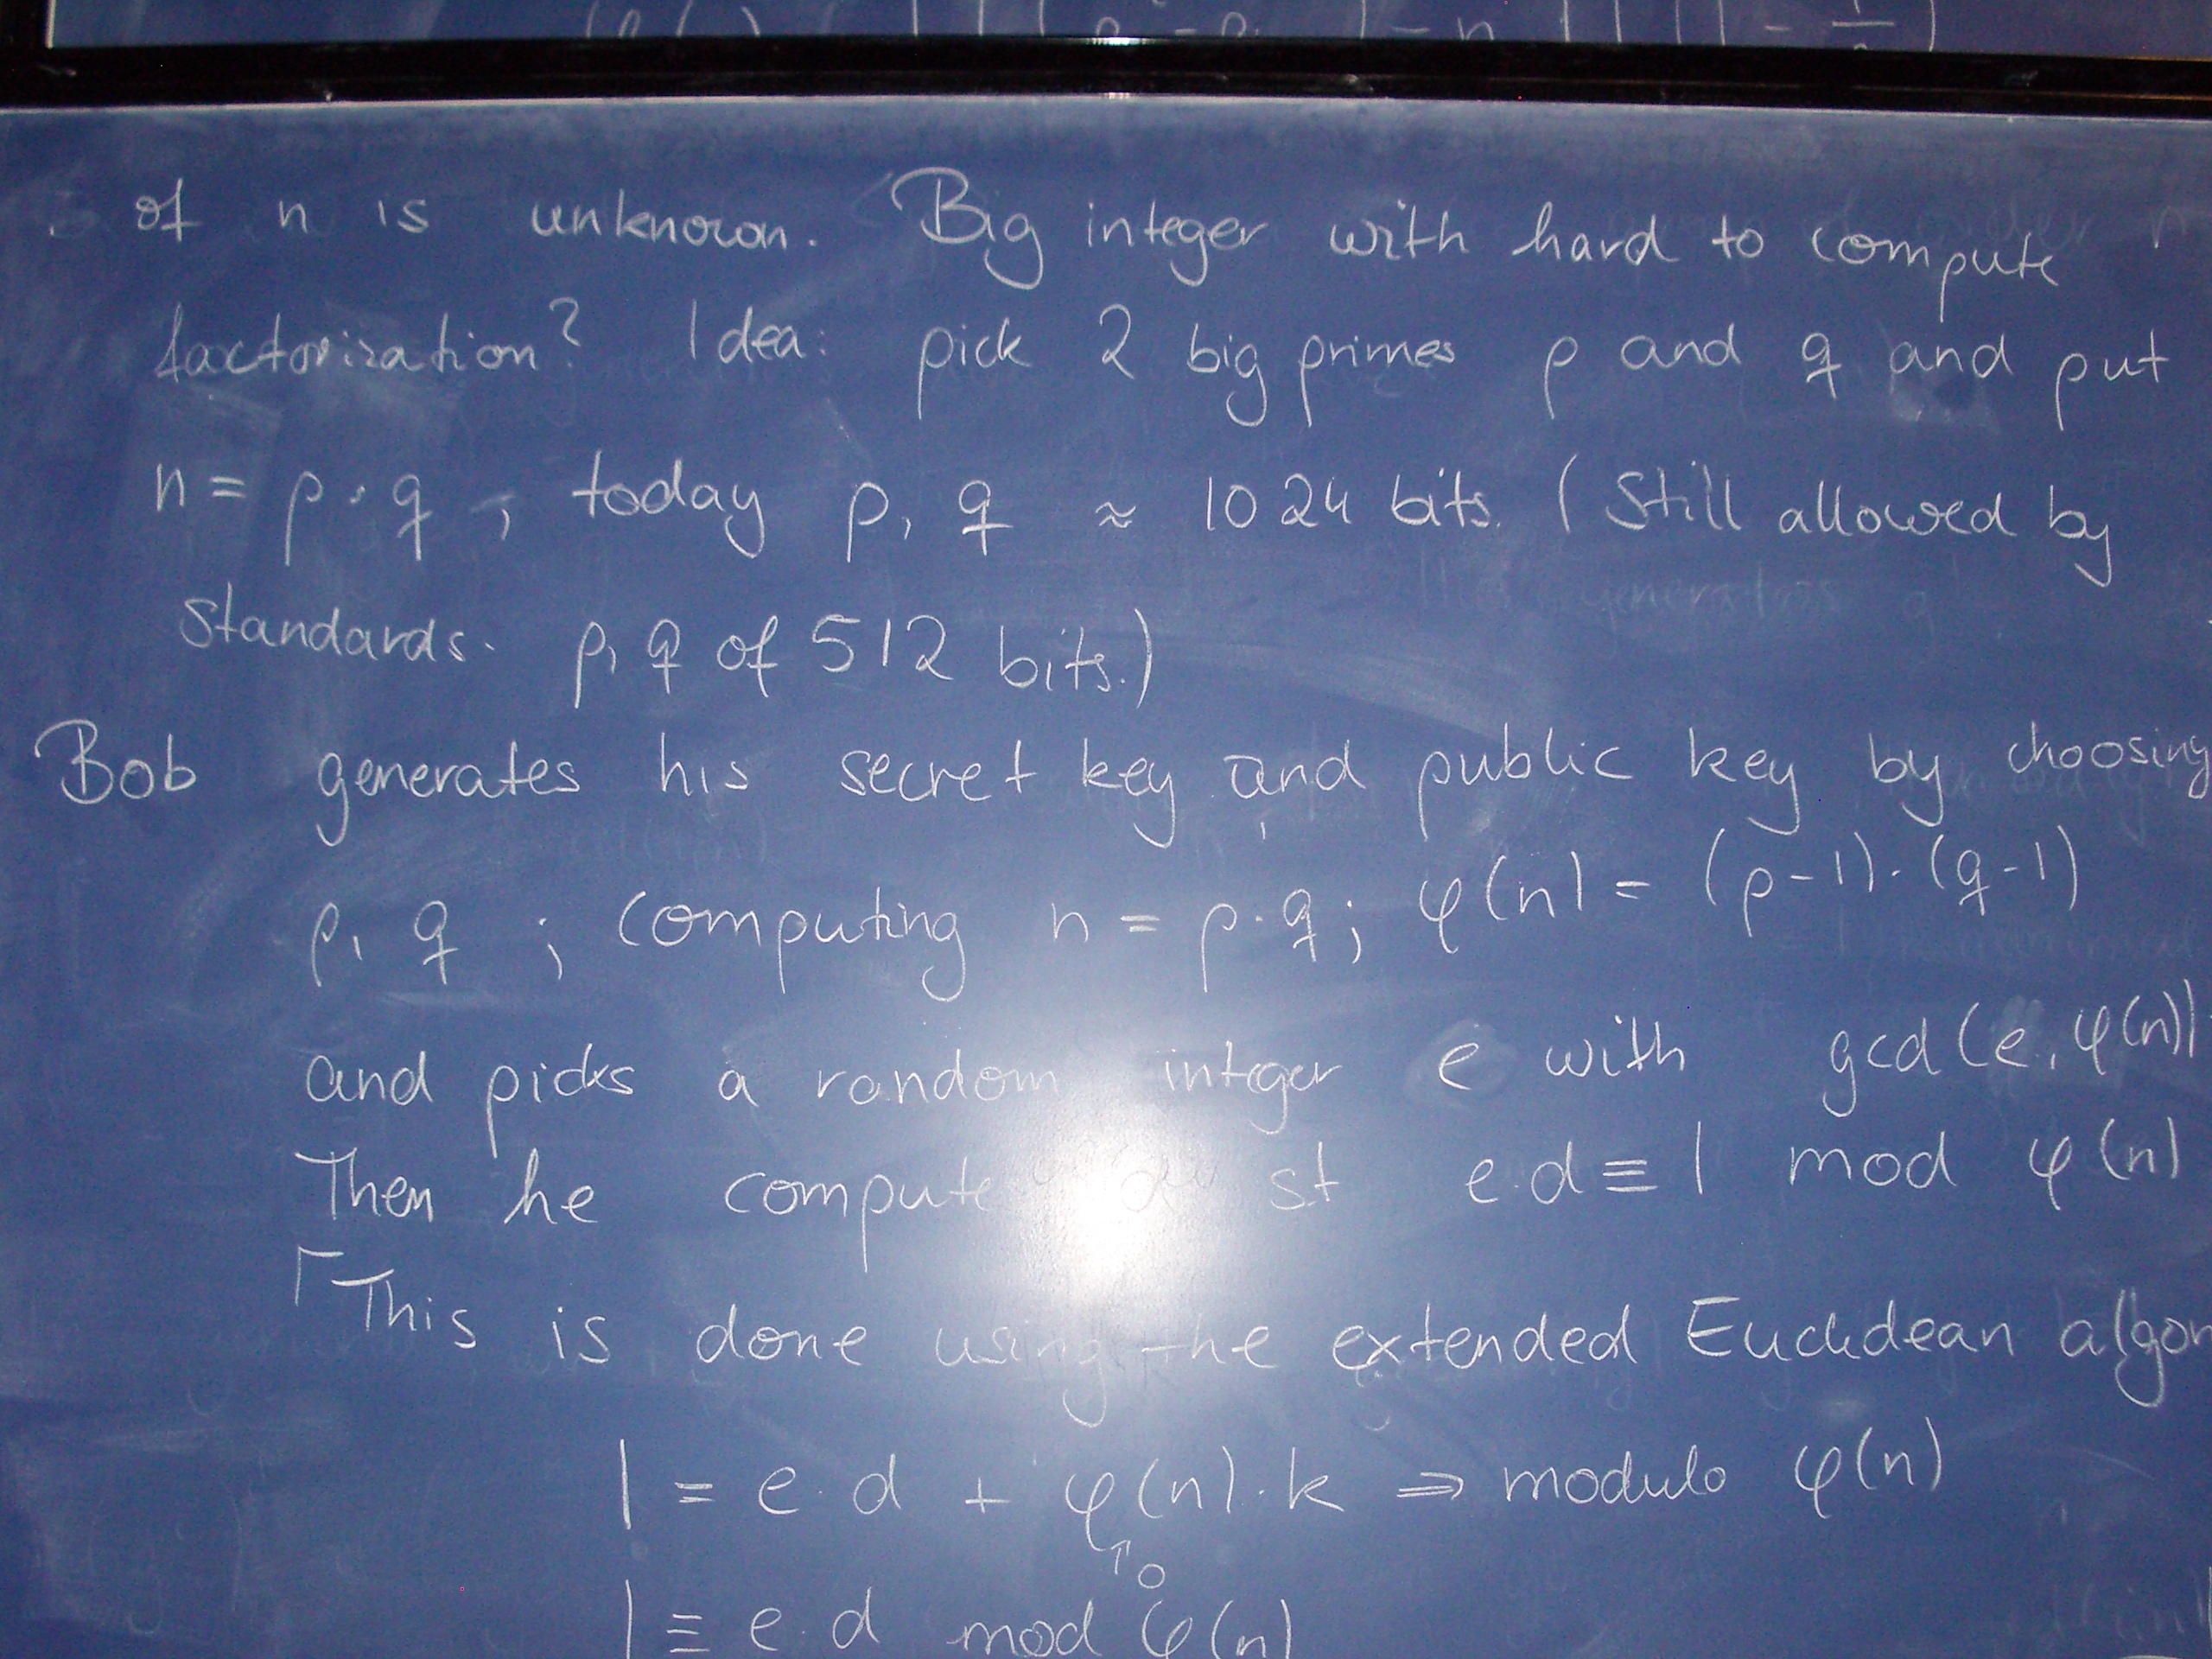 of n is unknown. Big integer with hard to compute
factorization? Idea: pick 2 big primes p and q and put
n = p·q, today p, q ≈ 1024 bits. (Still allowed by
standards. p, q of 512 bits.)
Bob generates his secret key and public key by choosing
p, q ; computing n = p·q; φ(n) = (p-1)·(q-1)
and picks a random integer e with gcd(e, φ(n))
Then he compute d st e·d ≡ 1 mod φ(n)
⌈This is done using the extended Euclidean algor
1 = e·d + φ(n)·k ⇒ modulo φ(n)
↑0
1 ≡ e·d mod φ(n)